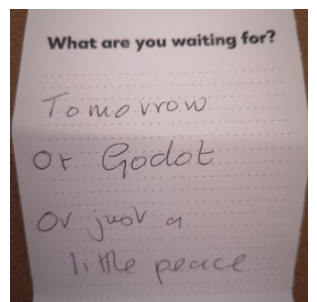 What are you waiting for?
Tomorrow
Or Godot
Or just a
little peace